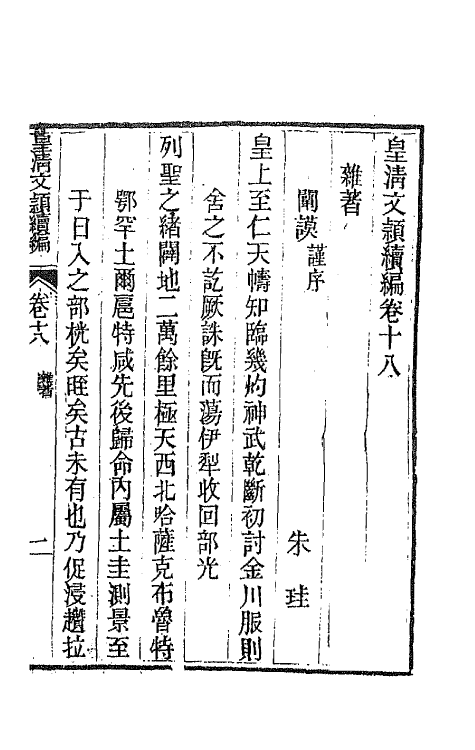 皇清文頴續編卷十八
雜著
闡謨謹序
朱珪
皇上至仁天幬知臨幾灼神武乾斷初討金川服則
舍之不訖厥誅旣而蕩伊犁收回部光
列聖之緒闢地二萬餘里極天西北哈薩克布魯特
鄂罕土爾扈特咸先後歸命內屬土圭測景至
于日入之部桄矣暀矣古未有也乃促浸趲拉
皇清文頴續編
卷十八
雜著
一